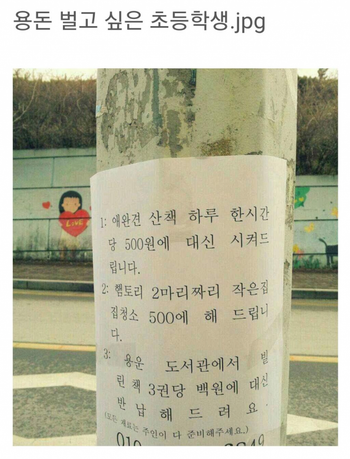 용돈 벌고 싶은 초등학생.jpg
1: 애완견 산책 하루 한시간
당 500원에 대신 시켜드
립니다.
2: 햄토리 2마리짜리 작은집
집청소 500에 해 드립니
다.
3: 용운 도서관에서 빌
린 책 3권당 백원에 대신
반납해드려요.
재료는 주인이 다 준비해주세요.)
010